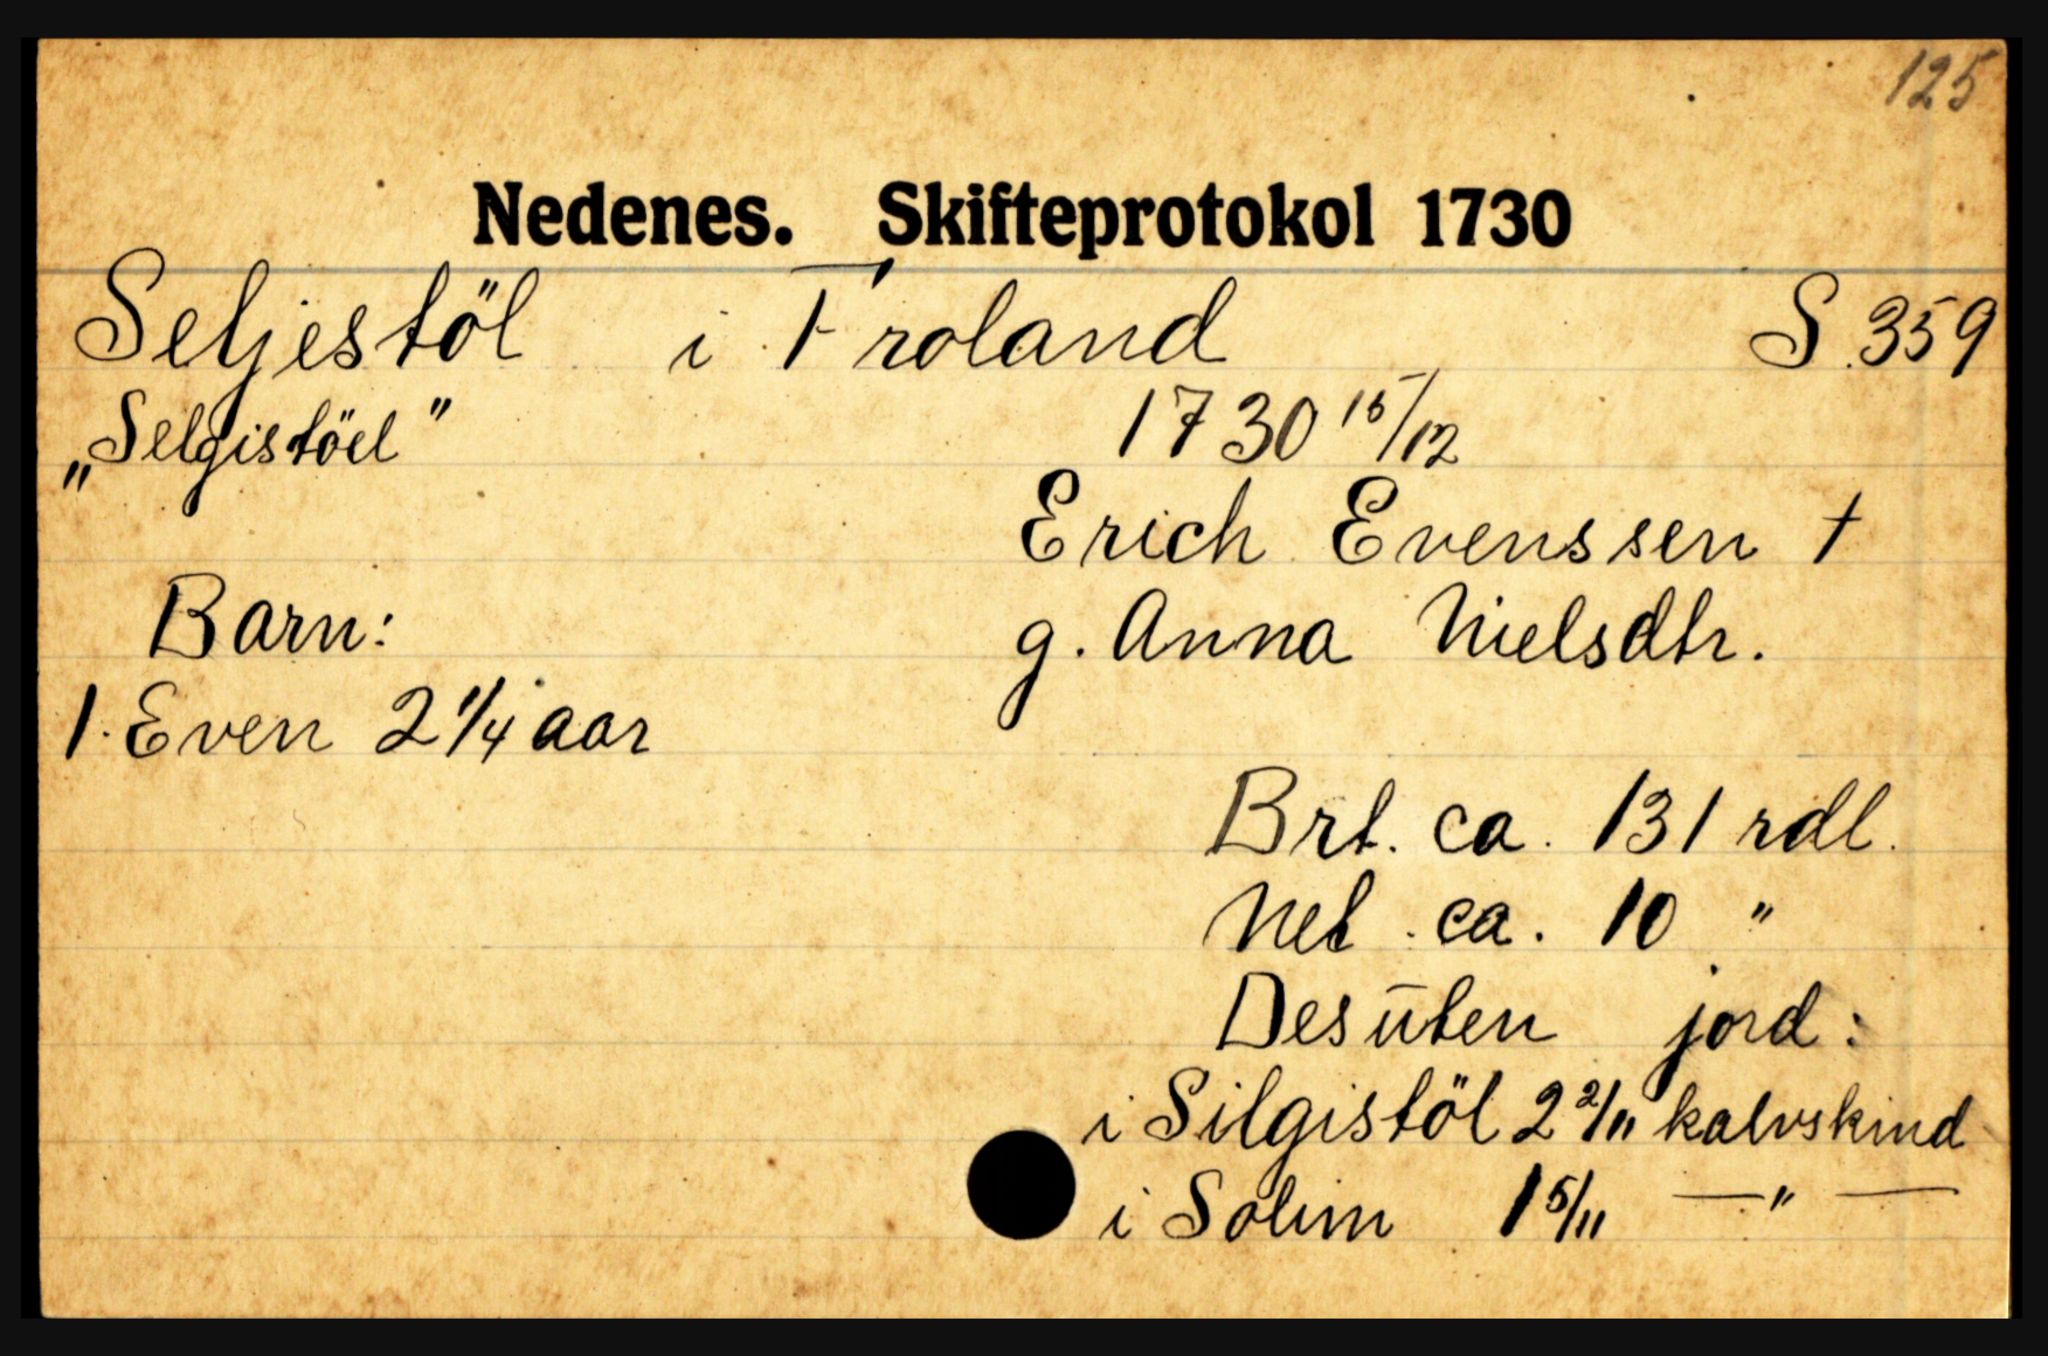 125
Nedenes. Skifteprotokol 1730
Seljestöl i Froland S. 359
„Selgistöel" 1730 15/12
Erich Evenssen †
Barn: g. Anna Nielsdtr.
1. Even 2 1/4 aar
Brt. ca. 131 rdl.
Net. ca. 10 "
Desūten jord:
i Silgistöl 2 2/11 kalvskind
i Solim 1 5/11 — " —